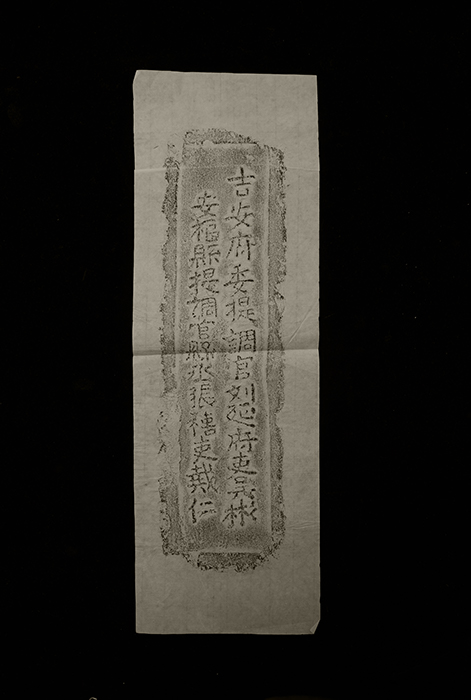 吉安府委提調官刘延府吏吴彬
安福縣提調官縣丞張櫓吏戴仁